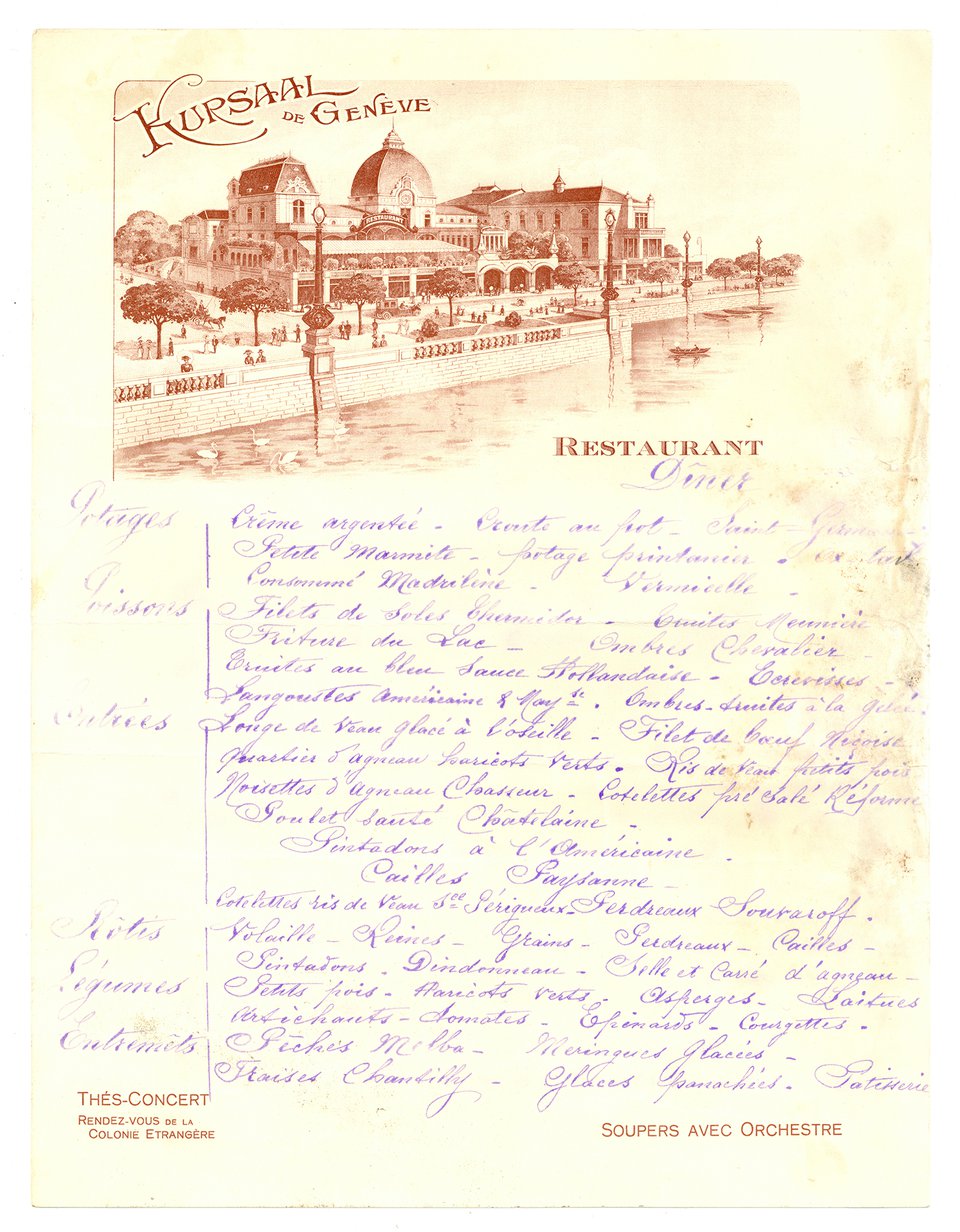 KURSAAL DE GENÈVE
RESTAURANT
RESTAURANT
Dîner
Potages
Crême argentée - Croute au pot - Saint-Germain
Petite Marmite - potage printanier -
Consommé Madrilène - Vermicelle -
Poissons
Filets de Soles Thermidor - Truites Meunière
Friture du Lac - Ombres Chevalier -
Truites au bleu Sauce Hollandaise - Ecrevisses -
Langoustes américaine & May se. Ombres-truites à la gelée.
Entrées
Longe de Veau glacé à l'oseille - Filet de bœuf Niçoise
Quartier d'agneau haricots verts. Ris de Veau petits pois
Noisettes d'Agneau Chasseur - Cotelettes pré Salé Réforme
Poulet Sauté Châtelaine -
Pintadons à l'Américaine -
Cailles Paysanne -
Cotelettes ris de Veau Sce Périgueux - Perdreaux Souvaroff.
Rôtis
Volaille - Reines - Grains - Perdreaux - Cailles -
Pintadons - Dindonneau - Selle et Carré d'agneau -
Légumes
Petits pois - Haricots verts - Asperges - Laitues
Artichauts - Tomates - Épinards - Courgettes.
Entremêts
Pêches Melba - Meringues Glacées -
Fraises Chantilly - Glaces panachées - Patisserie
THÉS-CONCERT
RENDEZ-VOUS DE LA
COLONIE ETRANGÈRE
SOUPERS AVEC ORCHESTRE